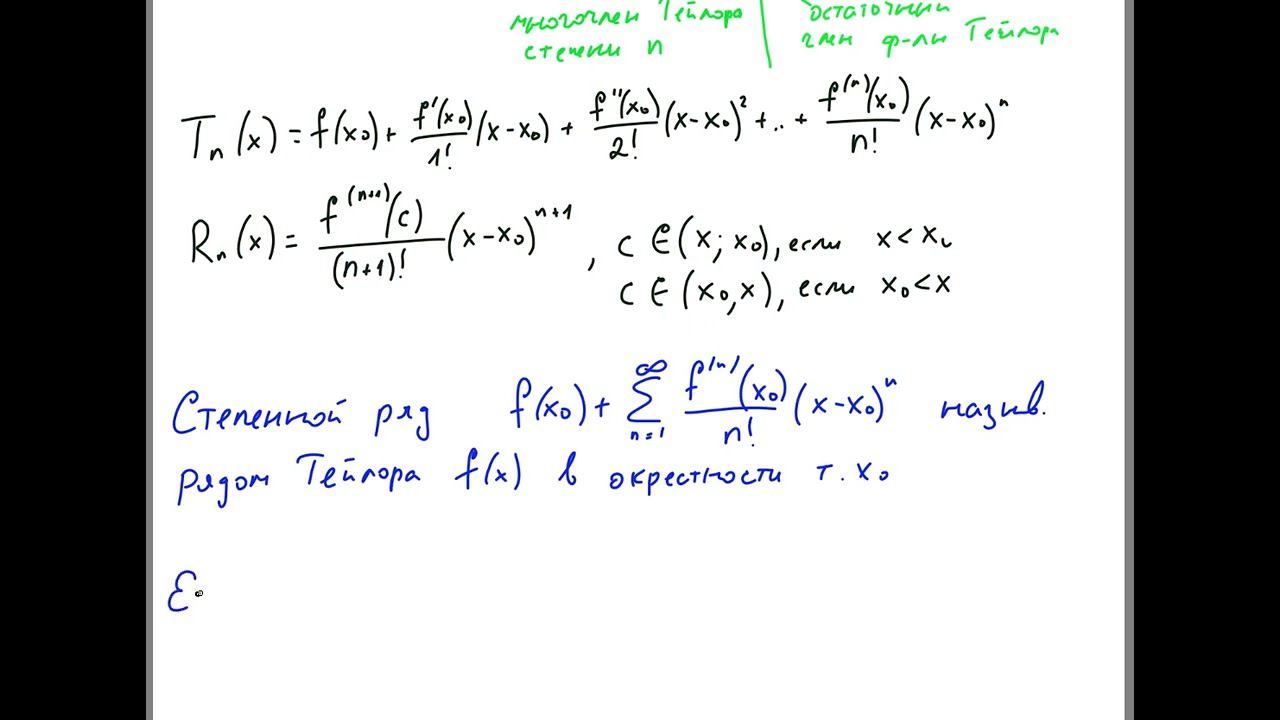 многочлен Тейлора
степени n
остаточный
член ф-лы Тейлора
Tₙ(x) = f(x₀) + f'(x₀)/1! (x-x₀) + f''(x₀)/2! (x-x₀)² + .. + f⁽ⁿ⁾(x₀)/n! (x-x₀)ⁿ
Rₙ(x) = f⁽ⁿ⁺¹⁾(c)/(n+1)! (x-x₀)ⁿ⁺¹ , c ∈ (x; x₀), если x < x₀
c ∈ (x₀, x), если x₀ < x
Степенной ряд f(x₀) + ∑ₙ₌₁^∞ f⁽ⁿ⁾(x₀)/n! (x-x₀)ⁿ назыв.
рядом Тейлора f(x) в окрестности т. x₀
Е